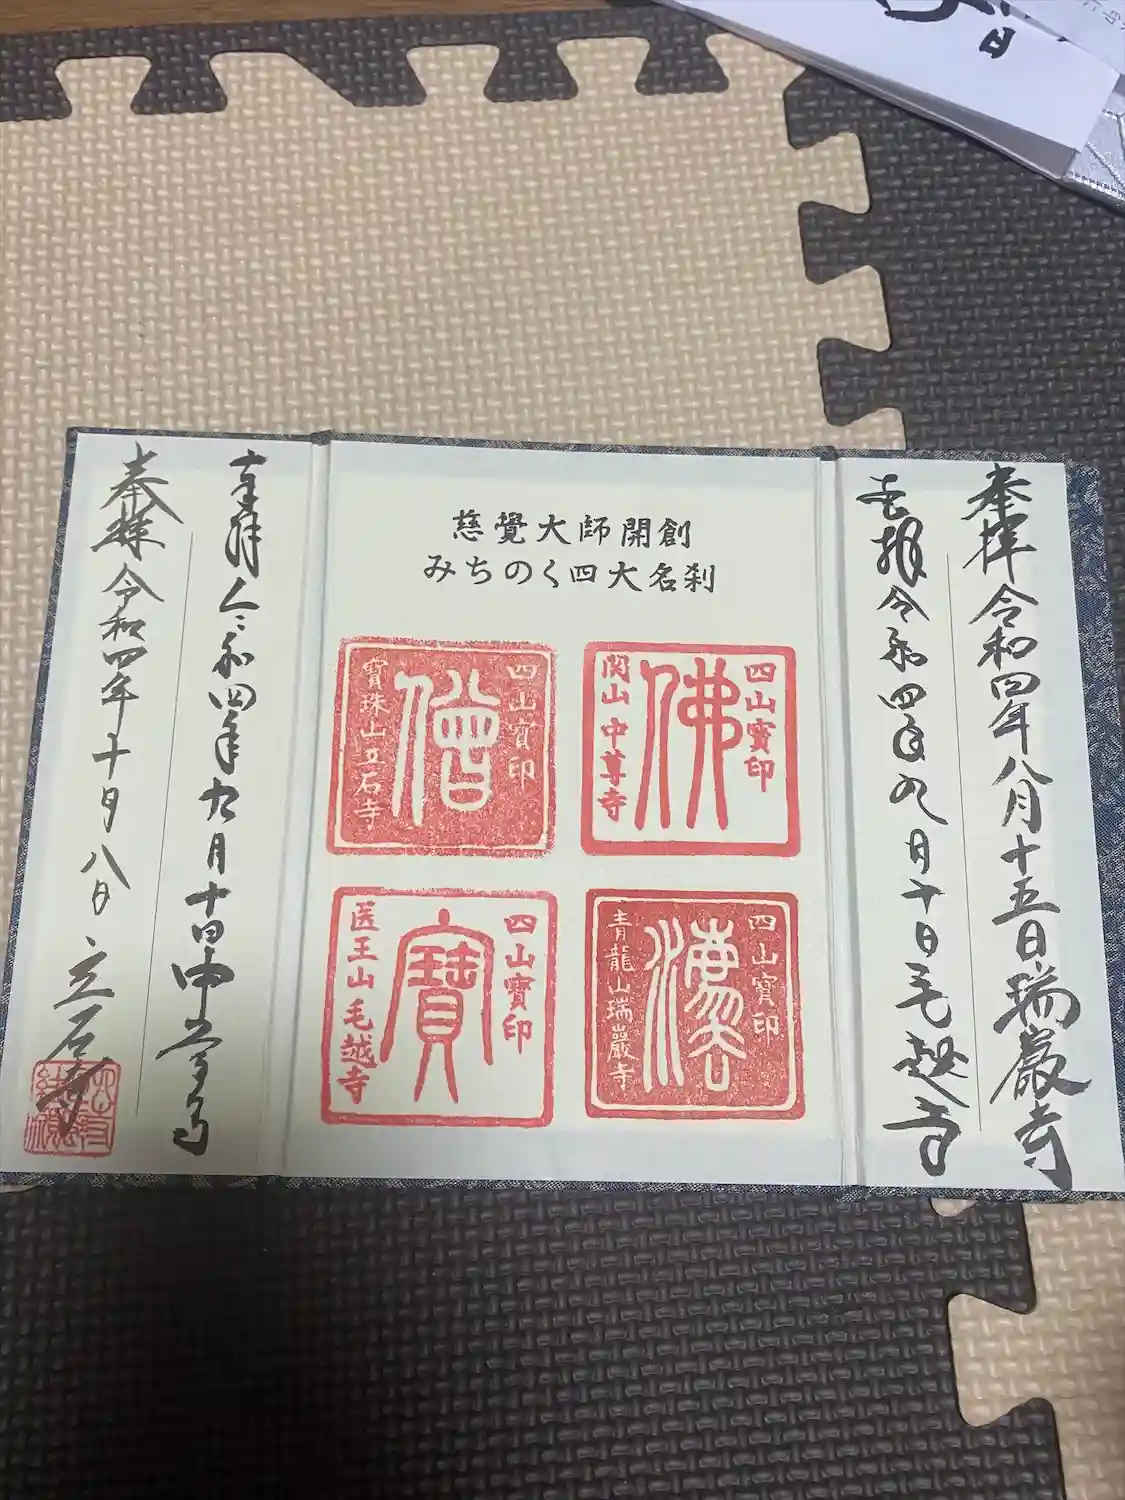 奉拝 令和四年八月十五日 瑞巌寺
奉拝 令和四年九月十日 毛越寺
慈覺大師開創
みちのく四大名刹
四山寶印
佛
関山 中尊寺
四山寶印
僧
寶珠山立石寺
四山寶印
法
青龍山瑞巖寺
四山寶印
寶
医王山 毛越寺
奉拝 令和四年九月十日 中尊寺
奉拝 令和四年十月八日 立石寺
日